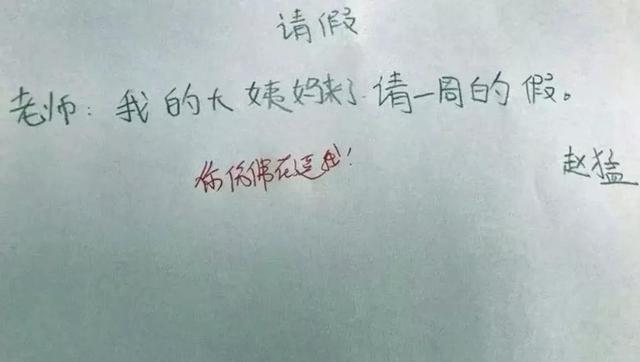 请假
老师：我的大姨妈来了请一周的假。
你仿佛在逗我！
赵猛